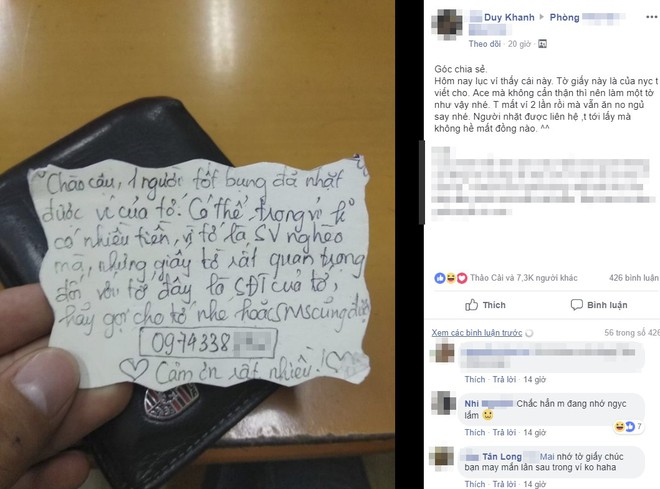 Chào cậu, 1 người tốt bụng đã nhặt
được ví của tớ. Có thể, trong ví k
có nhiều tiền, vì tớ là SV nghèo
mà, nhưng giấy tờ rất quan trọng
đối với tớ, đây là SĐT của tớ,
hãy gọi cho tớ nhé hoặc SMS cũng được
0974338
Cảm ơn rất nhiều!
Duy Khanh ▸ Phòng
Theo dõi · 20 giờ ·
Góc chia sẻ.
Hôm nay lục ví thấy cái này. Tờ giấy này là của nyc t
viết cho. Ace mà không cẩn thận thì nên làm một tờ
như vậy nhé. T mất ví 2 lần rồi mà vẫn ăn no ngủ
say nhé. Người nhặt được liên hệ ,t tới lấy mà
không hề mất đồng nào. ^^
Thảo Cải và 7,3K người khác
426 bình luận
Thích
Bình luận
Xem các bình luận trước
56 trong số 426
Thích · Trả lời · 14 giờ
Nhi Chắc hẳn m đang nhớ ngyc
lắm
7
Thích · Trả lời · 14 giờ
Tân Long Mai nhớ tờ giấy chúc
bạn may mắn lần sau trong ví ko haha
Thích · Trả lời · 14 giờ